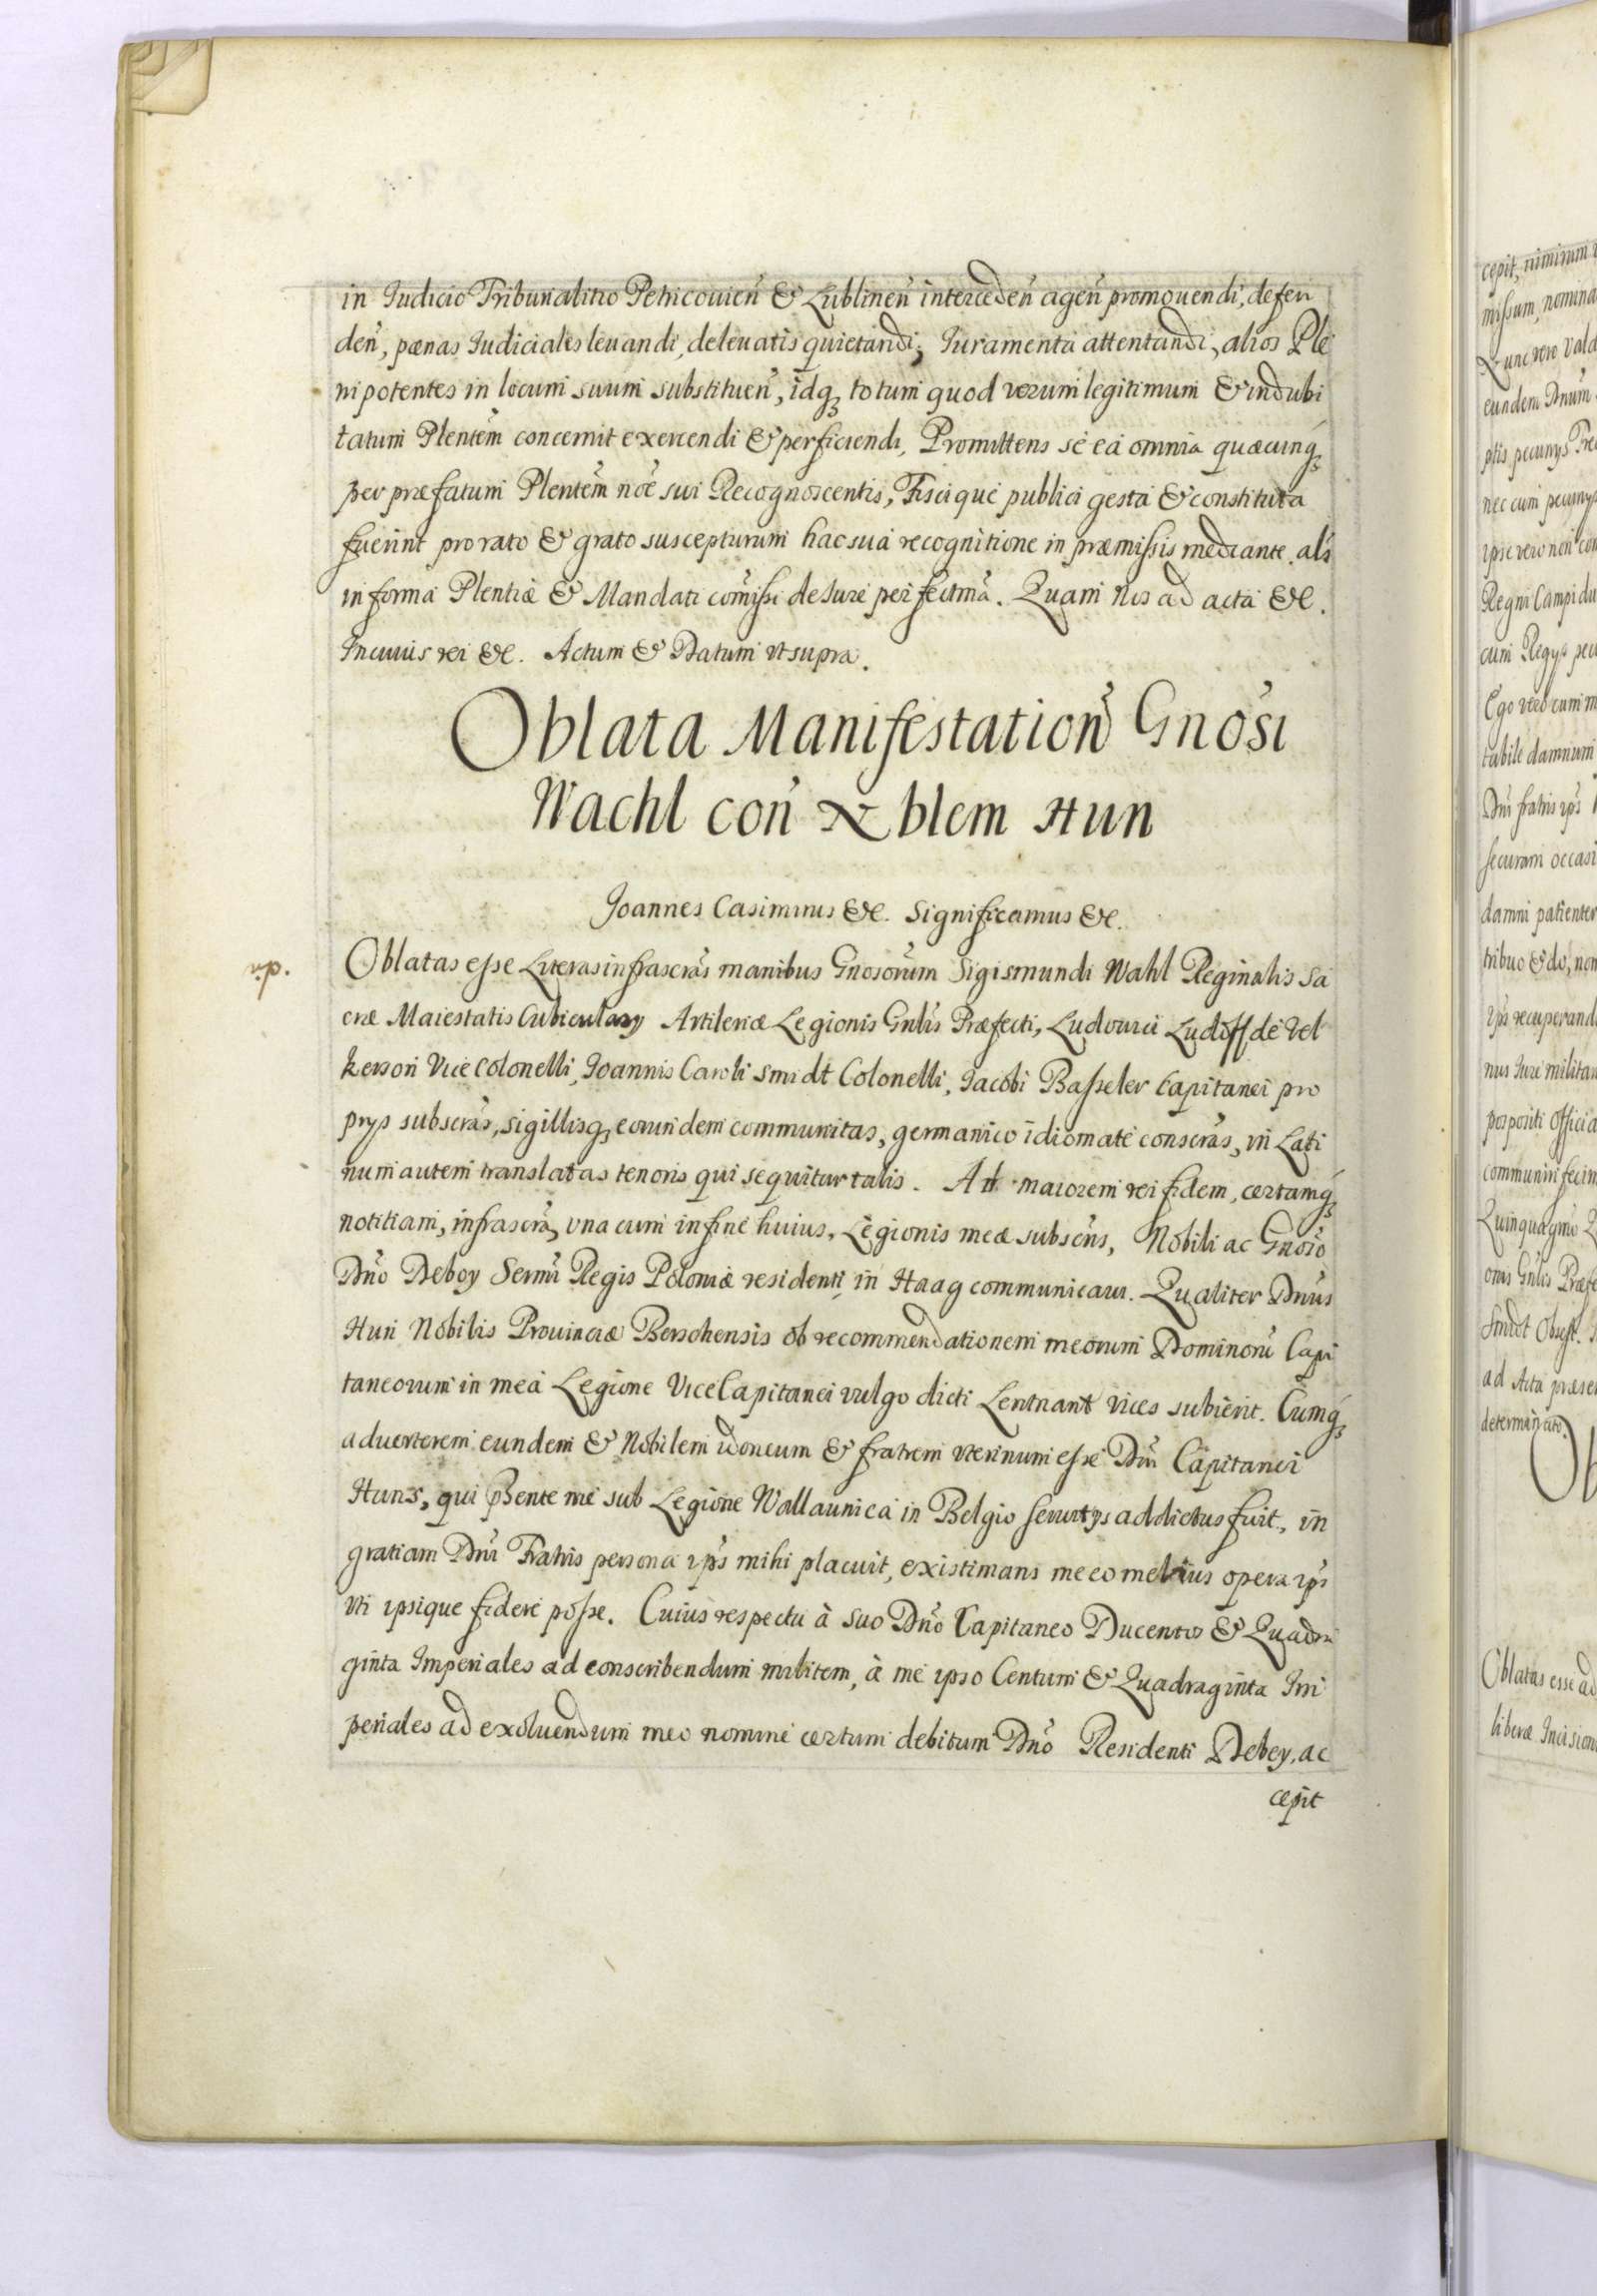 in Judicio Tribunalitio Petricouien̄ & Lublinen̄ interceden̄ agen̄ promouendi, defen
den̄, pænas Judiciales leuandi, deleuatis quietandi, Juramenta attentandi, alios Ple
nipotentes in locum suum substituen̄, idq̨ totum quod verum legitimum & indubi
tatum Plentem̄ concernit exercendi & perficiendi, Promittens se ea omnia quæcunq̨
per præfatum Plentem̄ noe̅ sui Recognoscentis, Fisci que publici gesta & constituta
fuerint pro rato & grato suscepturum hac sua recognitione in præmissis mediante. als̄
in forma Plentiæ & Mandati com̄issi de Jure perfectma̅. Quam Nos ad acta &c.
In cuius rei &c. Actum & Datum vt supra.
Oblata Manifestation̄ Gnosi̅
Wachl con̄ Nblem Hun
Joannes Casimirus &c. Significamus &c.
r.p.
Oblatas esse Literas infrascras̄ manibus Gnosorum̄ Sigismundi Wahl Reginalis Sa
cræ Maiestatis Cubicularij Artileriæ Legionis Gnlis̄ Præfecti, Ludouici Ludoff de Vel
kerson Vice Colonelli, Joannis Caroli Smidt Colonelli, Jacobi Basseler Capitanei pro
prijs subscras̄, sigillisq̨ eorundem communitas, germanico idiomate conscras̄, in Lati
num autem translatas tenoris qui sequitur talis. Ad maiorem rei fidem, certamq̨
notitiam, infrascra̅, vna cum in fine huius, Legionis meæ subscris̄, Nobili ac Gnoso̅
Dno̅ Deboy Sermi̅ Regis Poloniæ residenti in Haag communicaui. Qualiter Dnus̄
Hun Nobilis Prouinciæ Berschensis ob recommendationem meorum Dominoru̅ Capi
taneorum in mea Legione ViceCapitanei vulgo dicti Leutnant vices subierit. Cumq̨
aduerterem eundem & Nobilem idoneum & fratrem vterinum esse Dni̅ Capitanei
Huns, qui p̄sente me sub Legione Wallaunica in Belgio seruitijs addictus fuit, in
gratiam Dni̅ Fratris persona ips̄ mihi placuit, existimans me eo melius opera ips̄
vti ipsique fidere posse. Cuius respectu à suo Dno̅ Capitaneo Ducentos & Quadra
ginta Imperiales ad conscribendum militem, à me ipso Centum & Quadraginta Im
periales ad exoluendum meo nomine certum debitum Dno̅ Residenti Debey, ac
cepit